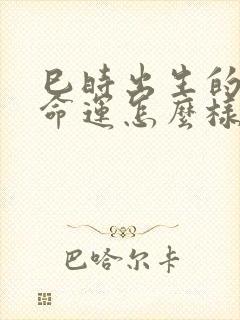 巳時出生的
命運怎麼樣
巴哈尔卡